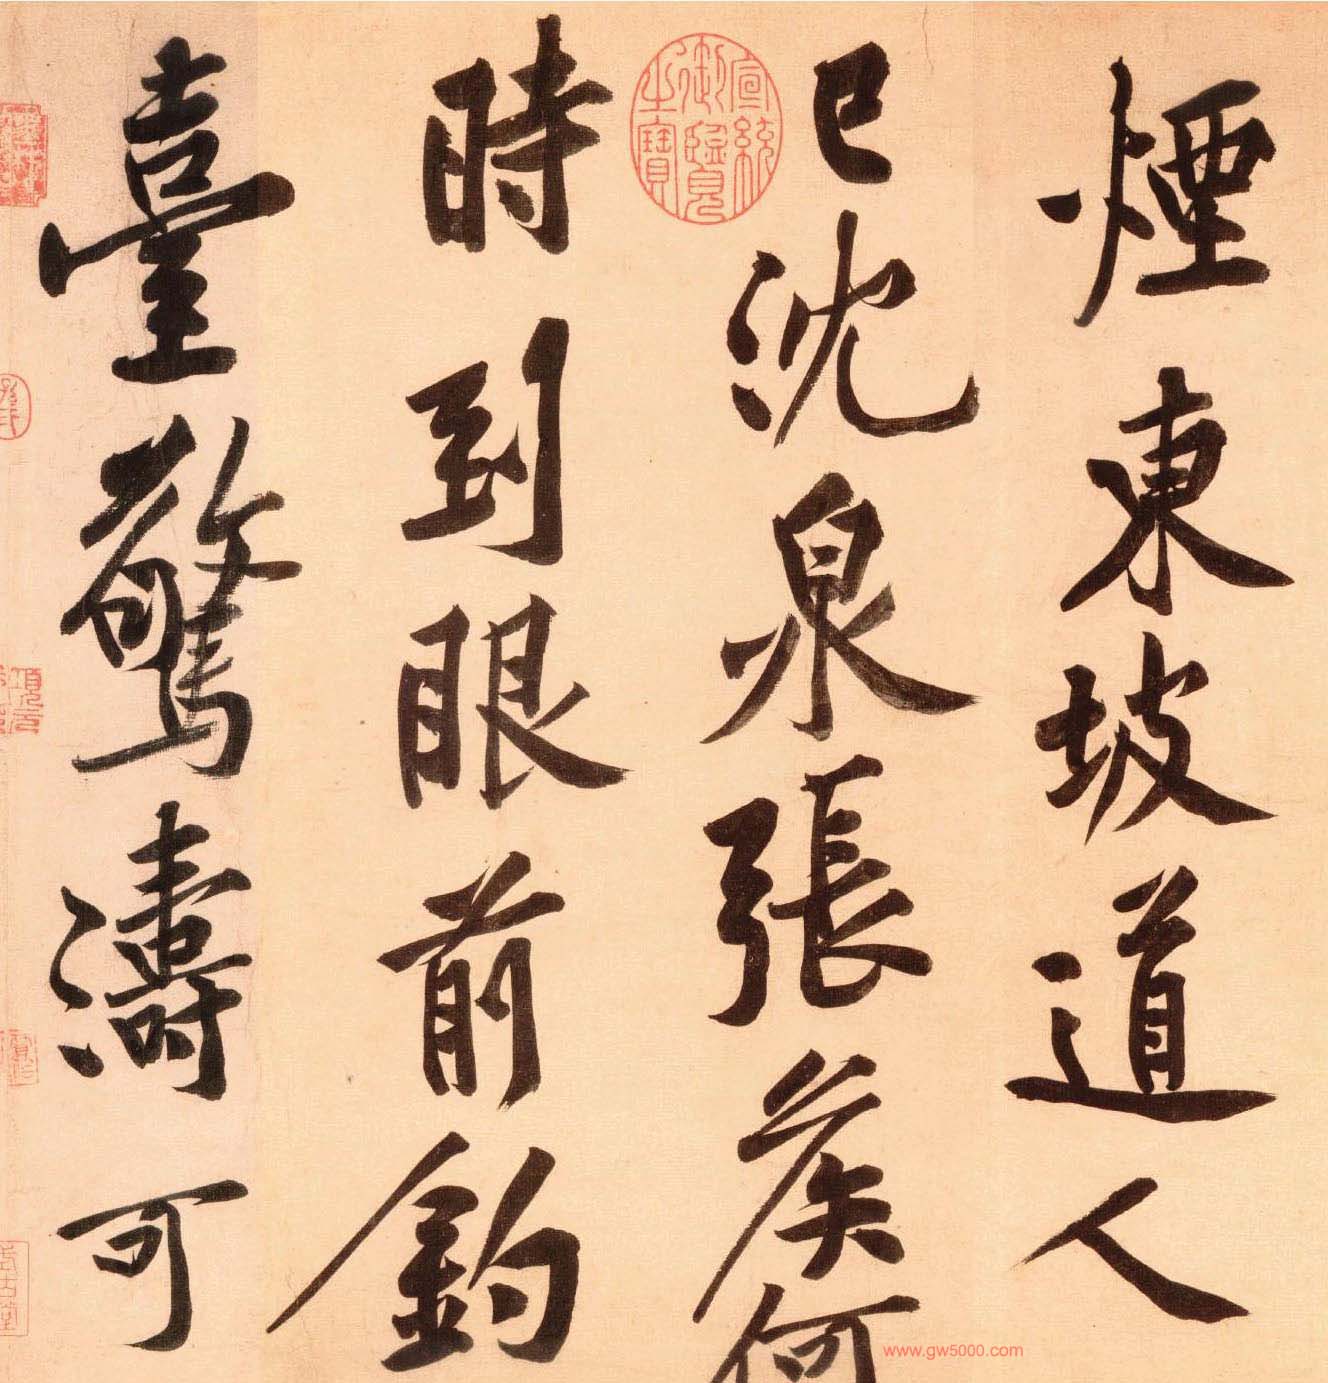 煙東坡道人
已沈泉張侯何
時到眼前釣
臺驚濤可
宣統御覽之寶
www.gw5000.com